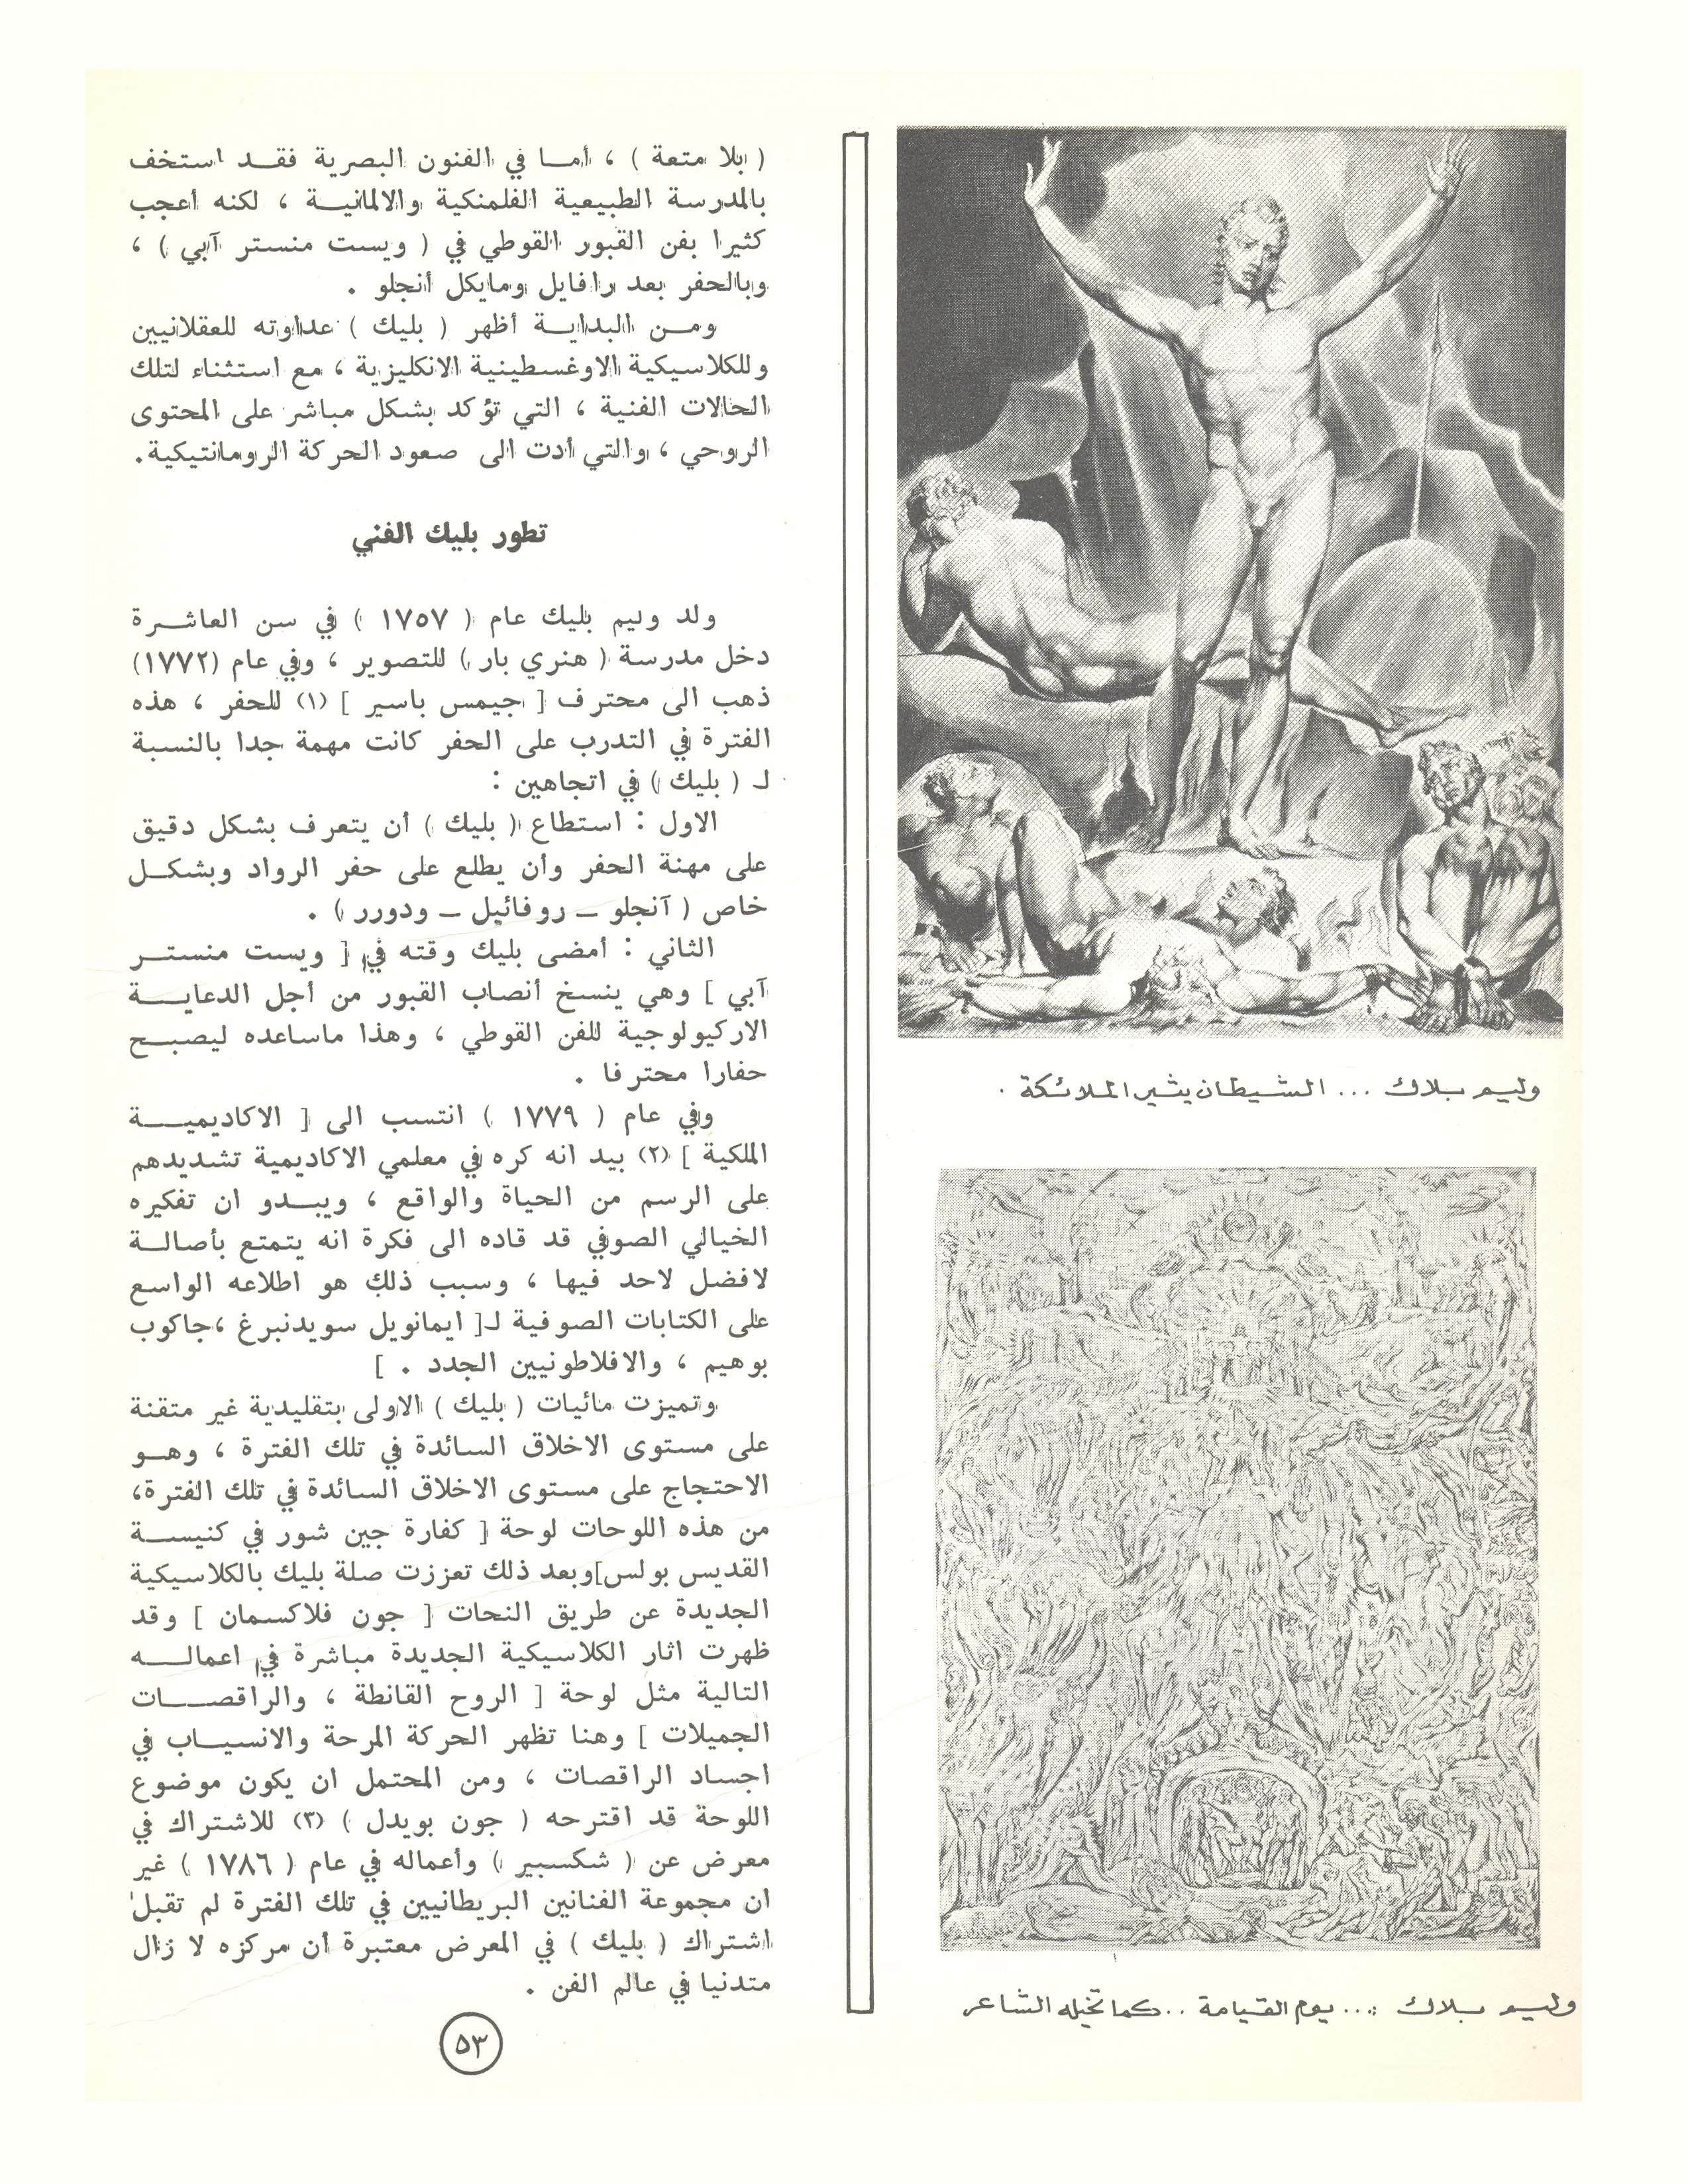 وليم بلاك ... الشيطان يثير الملائكة .
وليم بلاك ... يوم القيامة .. كما تخيله الشاعر
( بلا متعة ) ، أما في الفنون البصرية فقد استخف
بالمدرسة الطبيعية الفلمنكية والالمانية ، لكنه أعجب
كثيرا بفن القبور القوطي في ( ويست منستر آبي ) ،
وبالحفر بعد رافايل ومايكل أنجلو .
ومن البداية أظهر ( بليك ) عداوته للعقلانيين
وللكلاسيكية الاوغسطينية الانكليزية ، مع استثناء لتلك
الحالات الفنية ، التي تؤكد بشكل مباشر على المحتوى
الروحي ، والتي أدت الى صعود الحركة الرومانتيكية .
تطور بليك الفني
ولد وليم بليك عام ( ١٧٥٧ ) في سن العاشرة
دخل مدرسة ( هنري بار ) للتصوير ، وفي عام (١٧٧٢)
ذهب الى محترف [ جيمس باسير ] (١) للحفر ، هذه
الفترة في التدرب على الحفر كانت مهمة جدا بالنسبة
لـ ( بليك ) في اتجاهين :
الاول : استطاع ( بليك ) أن يتعرف بشكل دقيق
على مهنة الحفر وأن يطلع على حفر الرواد وبشكل
خاص ( آنجلو – روفائيل – ودورر ) .
الثاني : أمضى بليك وقته في [ ويست منستر
آبي ] وهي ينسخ أنصاب القبور من أجل الدعاية
الاركيولوجية للفن القوطي ، وهذا ماساعده ليصبح
حفارا محترفا .
وفي عام ( ١٧٧٩ ) انتسب الى [ الاكاديمية
الملكية ] (٢) بيد انه كره في معلمي الاكاديمية تشديدهم
على الرسم من الحياة والواقع ، ويبدو ان تفكيره
الخيالي الصوفي قد قاده الى فكرة انه يتمتع بأصالة
لافضل لاحد فيها ، وسبب ذلك هو اطلاعه الواسع
على الكتابات الصوفية لـ[ ايمانويل سويدنبرغ ،جاكوب
بوهيم ، والافلاطونيين الجدد . ]
وتميزت مائيات ( بليك ) الاولى بتقليدية غير متقنة
على مستوى الاخلاق السائدة في تلك الفترة ، وهو
الاحتجاج على مستوى الاخلاق السائدة في تلك الفترة،
من هذه اللوحات لوحة [ كفارة جين شور في كنيسة
القديس بولس]وبعد ذلك تعززت صلة بليك بالكلاسيكية
الجديدة عن طريق النحات [ جون فلاكسمان ] وقد
ظهرت اثار الكلاسيكية الجديدة مباشرة في اعماله
التالية مثل لوحة [ الروح القانطة ، والراقصات
الجميلات ] وهنا تظهر الحركة المرحة والانسياب في
اجساد الراقصات ، ومن المحتمل ان يكون موضوع
اللوحة قد اقترحه ( جون بويدل ) (٣) للاشتراك في
معرض عن ( شكسبير ) وأعماله في عام ( ١٧٨٦ ) غير
ان مجموعة الفنانين البريطانيين في تلك الفترة لم تقبل
اشتراك ( بليك ) في المعرض معتبرة أن مركزه لا زال
متدنيا في عالم الفن .
٥٣